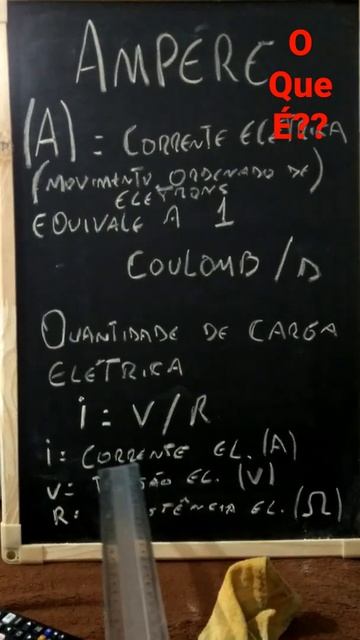 AMPÈRE
O
Que
É??
(A) = CORRENTE ELÉTRICA
(MOVIMENTO ORDENADO DE
ELÉTRONS)
EQUIVALE A 1
COULOMB/s
QUANTIDADE DE CARGA
ELÉTRICA
i = V/R
i = CORRENTE EL. (A)
V = EL. (V)
R = EL. (Ω)